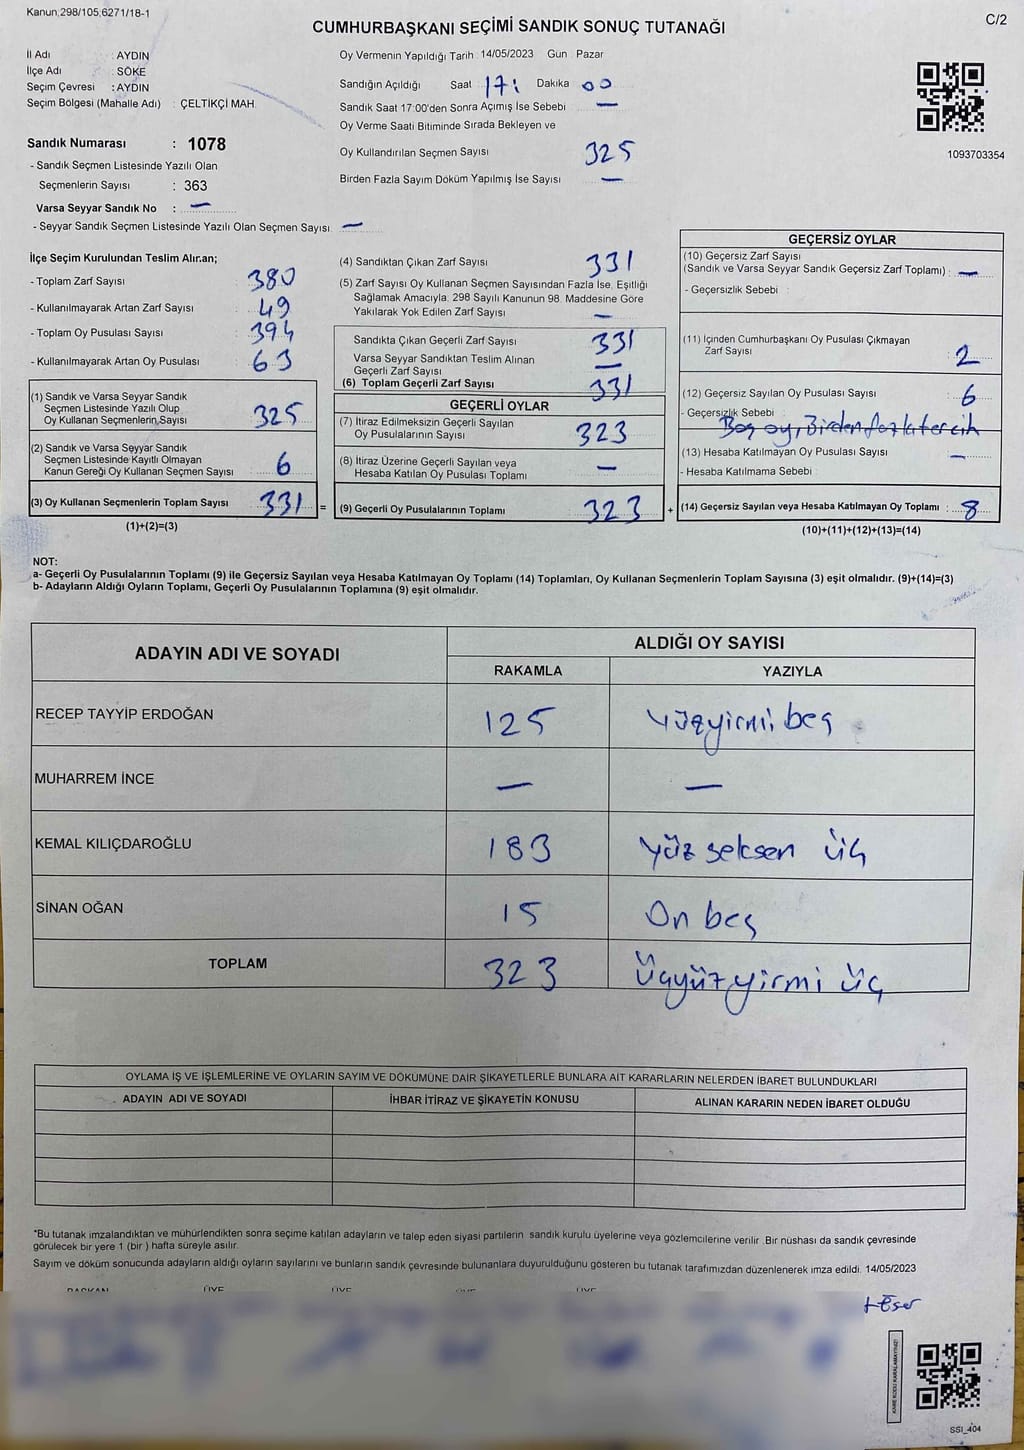 Kanun;298/105,6271/18-1
C/2
CUMHURBAŞKANI SEÇİMİ SANDIK SONUÇ TUTANAĞI
İl Adı : AYDIN
İlçe Adı : SÖKE
Seçim Çevresi : AYDIN
Seçim Bölgesi (Mahalle Adı) : ÇELTİKÇİ MAH.
Sandık Numarası : 1078
- Sandık Seçmen Listesinde Yazılı Olan
Seçmenlerin Sayısı : 363
Varsa Seyyar Sandık No : —
- Seyyar Sandık Seçmen Listesinde Yazılı Olan Seçmen Sayısı: —
Oy Vermenin Yapıldığı Tarih : 14/05/2023 Gün Pazar
Sandığın Açıldığı Saat 17: Dakika 00
Sandık Saat 17:00'den Sonra Açımış İse Sebebi —
Oy Verme Saati Bitiminde Sırada Bekleyen ve
Oy Kullandırılan Seçmen Sayısı 325
Birden Fazla Sayım Döküm Yapılmış İse Sayısı —
1093703354
İlçe Seçim Kurulundan Teslim Alınan;
- Toplam Zarf Sayısı : 380
- Kullanılmayarak Artan Zarf Sayısı : 49
- Toplam Oy Pusulası Sayısı : 394
- Kullanılmayarak Artan Oy Pusulası : 63
(1) Sandık ve Varsa Seyyar Sandık
Seçmen Listesinde Yazılı Olup
Oy Kullanan Seçmenlerin Sayısı : 325
(2) Sandık ve Varsa Seyyar Sandık
Seçmen Listesinde Kayıtlı Olmayan
Kanun Gereği Oy Kullanan Seçmen Sayısı : 6
(3) Oy Kullanan Seçmenlerin Toplam Sayısı : 331 =
(1)+(2)=(3)
(4) Sandıktan Çıkan Zarf Sayısı : 331
(5) Zarf Sayısı Oy Kullanan Seçmen Sayısından Fazla İse, Eşitliği
Sağlamak Amacıyla; 298 Sayılı Kanunun 98. Maddesine Göre
Yakılarak Yok Edilen Zarf Sayısı : —
Sandıkta Çıkan Geçerli Zarf Sayısı : 331
Varsa Seyyar Sandıktan Teslim Alınan
Geçerli Zarf Sayısı : —
(6) Toplam Geçerli Zarf Sayısı : 331
GEÇERLİ OYLAR
(7) İtiraz Edilmeksizin Geçerli Sayılan
Oy Pusulalarının Sayısı : 323
(8) İtiraz Üzerine Geçerli Sayılan veya
Hesaba Katılan Oy Pusulası Toplamı : —
(9) Geçerli Oy Pusulalarının Toplamı : 323 +
GEÇERSİZ OYLAR
(10) Geçersiz Zarf Sayısı
(Sandık ve Varsa Seyyar Sandık Geçersiz Zarf Toplamı) : —
- Geçersizlik Sebebi :
(11) İçinden Cumhurbaşkanı Oy Pusulası Çıkmayan
Zarf Sayısı : 2
(12) Geçersiz Sayılan Oy Pusulası Sayısı : 6
- Geçersizlik Sebebi :
Boş oy, Birden fazla tercih
(13) Hesaba Katılmayan Oy Pusulası Sayısı : —
- Hesaba Katılmama Sebebi :
(14) Geçersiz Sayılan veya Hesaba Katılmayan Oy Toplamı : 8
(10)+(11)+(12)+(13)=(14)
NOT:
a- Geçerli Oy Pusulalarının Toplamı (9) ile Geçersiz Sayılan veya Hesaba Katılmayan Oy Toplamı (14) Toplamları, Oy Kullanan Seçmenlerin Toplam Sayısına (3) eşit olmalıdır. (9)+(14)=(3)
b- Adayların Aldığı Oyların Toplamı, Geçerli Oy Pusulalarının Toplamına (9) eşit olmalıdır.
ADAYIN ADI VE SOYADI ALDIĞI OY SAYISI
RAKAMLA YAZIYLA
RECEP TAYYİP ERDOĞAN 125 yüzyirmi beş
MUHARREM İNCE — —
KEMAL KILIÇDAROĞLU 183 yüz seksen üç
SİNAN OĞAN 15 On beş
TOPLAM 323 Üçyüz yirmi üç
OYLAMA İŞ VE İŞLEMLERİNE VE OYLARIN SAYIM VE DÖKÜMÜNE DAİR ŞİKAYETLERLE BUNLARA AİT KARARLARIN NELERDEN İBARET BULUNDUKLARI
ADAYIN ADI VE SOYADI İHBAR İTİRAZ VE ŞİKAYETİN KONUSU ALINAN KARARIN NEDEN İBARET OLDUĞU
*Bu tutanak imzalandıktan ve mühürlendikten sonra seçime katılan adayların ve talep eden siyasi partilerin sandık kurulu üyelerine veya gözlemcilerine verilir .Bir nüshası da sandık çevresinde
görülecek bir yere 1 (bir ) hafta süreyle asılır.
Sayım ve döküm sonucunda adayların aldığı oyların sayılarını ve bunların sandık çevresinde bulunanlara duyurulduğunu gösteren bu tutanak tarafımızdan düzenlenerek imza edildi. 14/05/2023
BAŞKAN ÜYE ÜYE ÜYE ÜYE
SSI_404